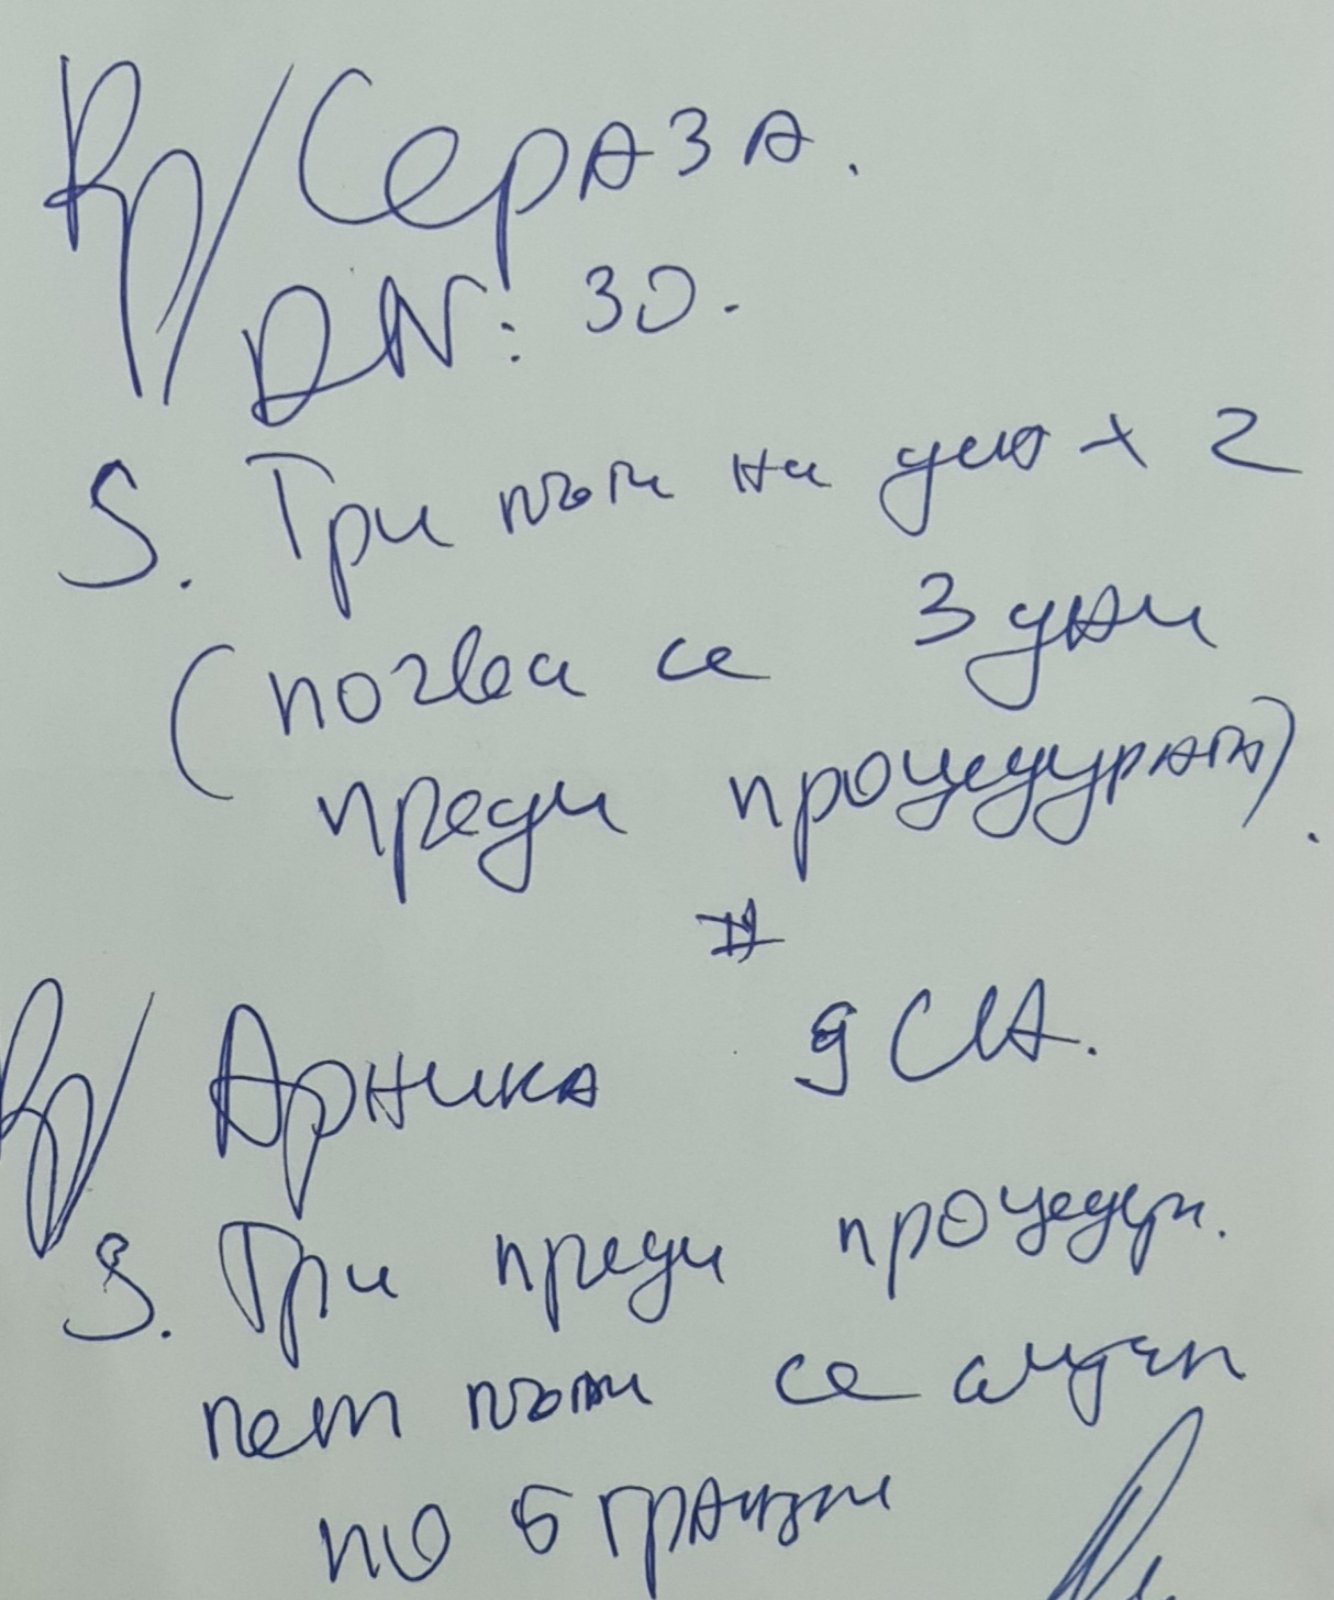 Rp/ Сераза.
DN: 30.
S. Три пъти на ден х 2
(почва се 3 дни
преди процедурата).
#
Rp/ Арника 9 СН.
S. Три преди процедури.
пет пъти се
по 5 гранули